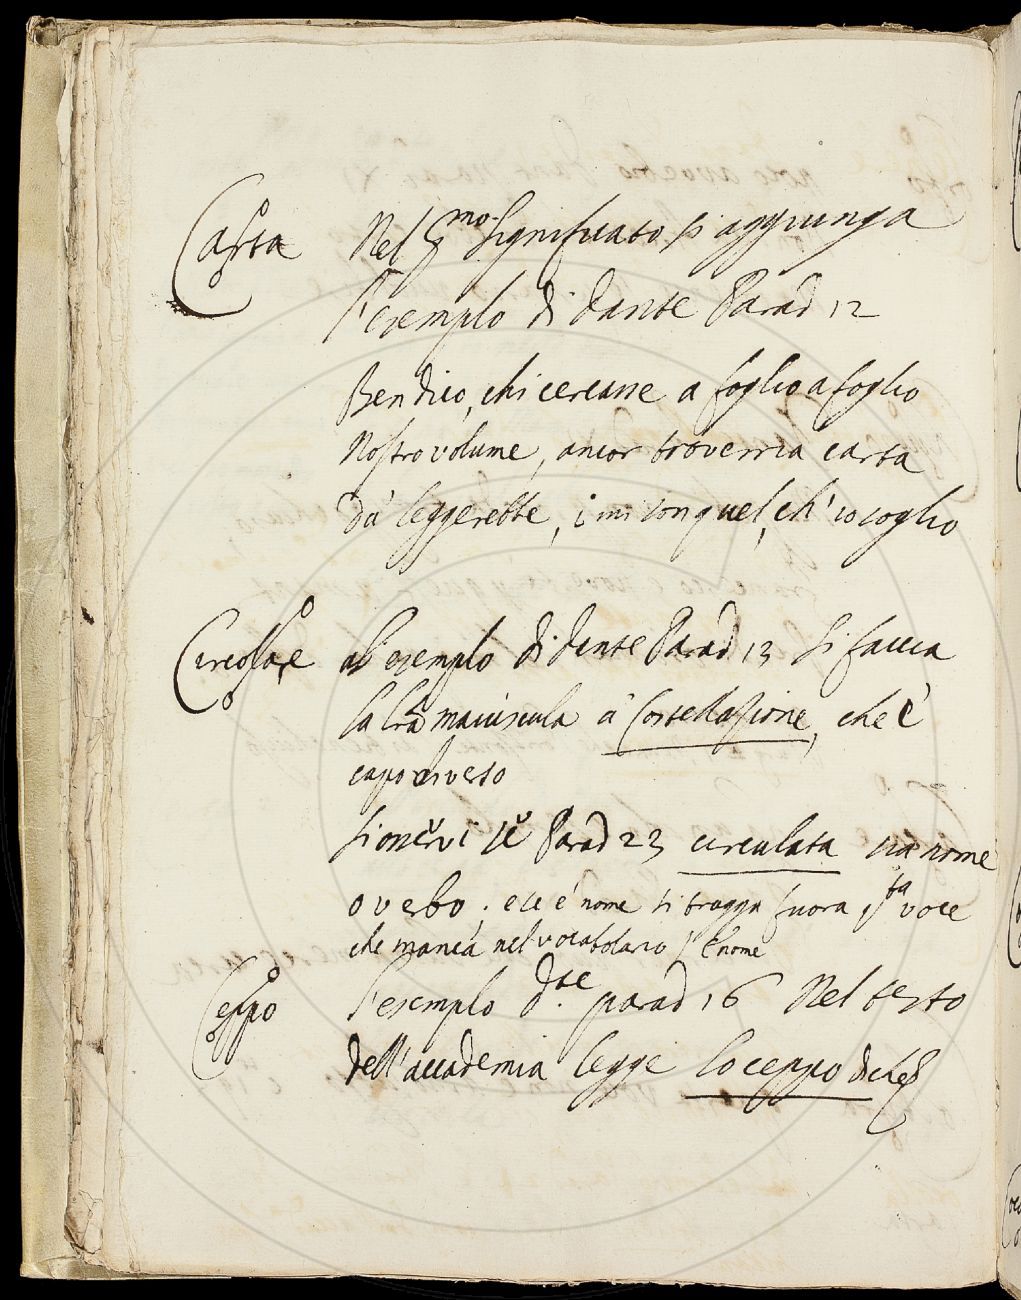 Carta Nel pmo. significato si aggiunga
l'esemplo di Dante Parad 12
Ben dico, chi cercasse a foglio a foglio
Nostro volume, ancor troverria carta
du' leggerebbe, i mi son quel, ch' io soglio
Circolare al esemplo di Dante Parad 13 si faccia
la lrã maiuscula à Costellazione, che è
capoverso
Parad 23 circulata sia nome
o verbo, e se è nome si tragga fuora voce
che manca nel vocabolario
Ceppo l'esemplo parad 16 Nel testo
dell'accademia legge lo ceppo di che